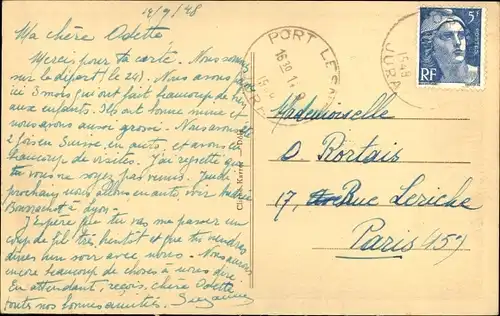 14/9/48
Ma chère Odette
Merci pour ta carte. Nous sommes
sur le départ (le 24). Nous avons
ici 3 mois qui ont fait beaucoup de bien
aux enfants. Ils ont bonne mine et
nous avons aussi grossi. Nous avons été
2 fois en Suisse, en auto, et avons eu
beaucoup de visites. J'ai regretté que
tu vous ne soyez pas venus. Jeudi
prochain nous allons en auto, voir
à Lyon -
J'espère que tu vas me passer un
coup de fil très bientôt et que tu viendras
dîner un soir avec nous. Nous aurons
encore beaucoup de choses à nous dire
En attendant, reçois, chère Odette
toutes nos bonnes amitiés. Suzanne
PORT LESNEY
JURA
1948
5F
RF
Mademoiselle
O. Rortais
17, Rue Leriche
Paris (15e)